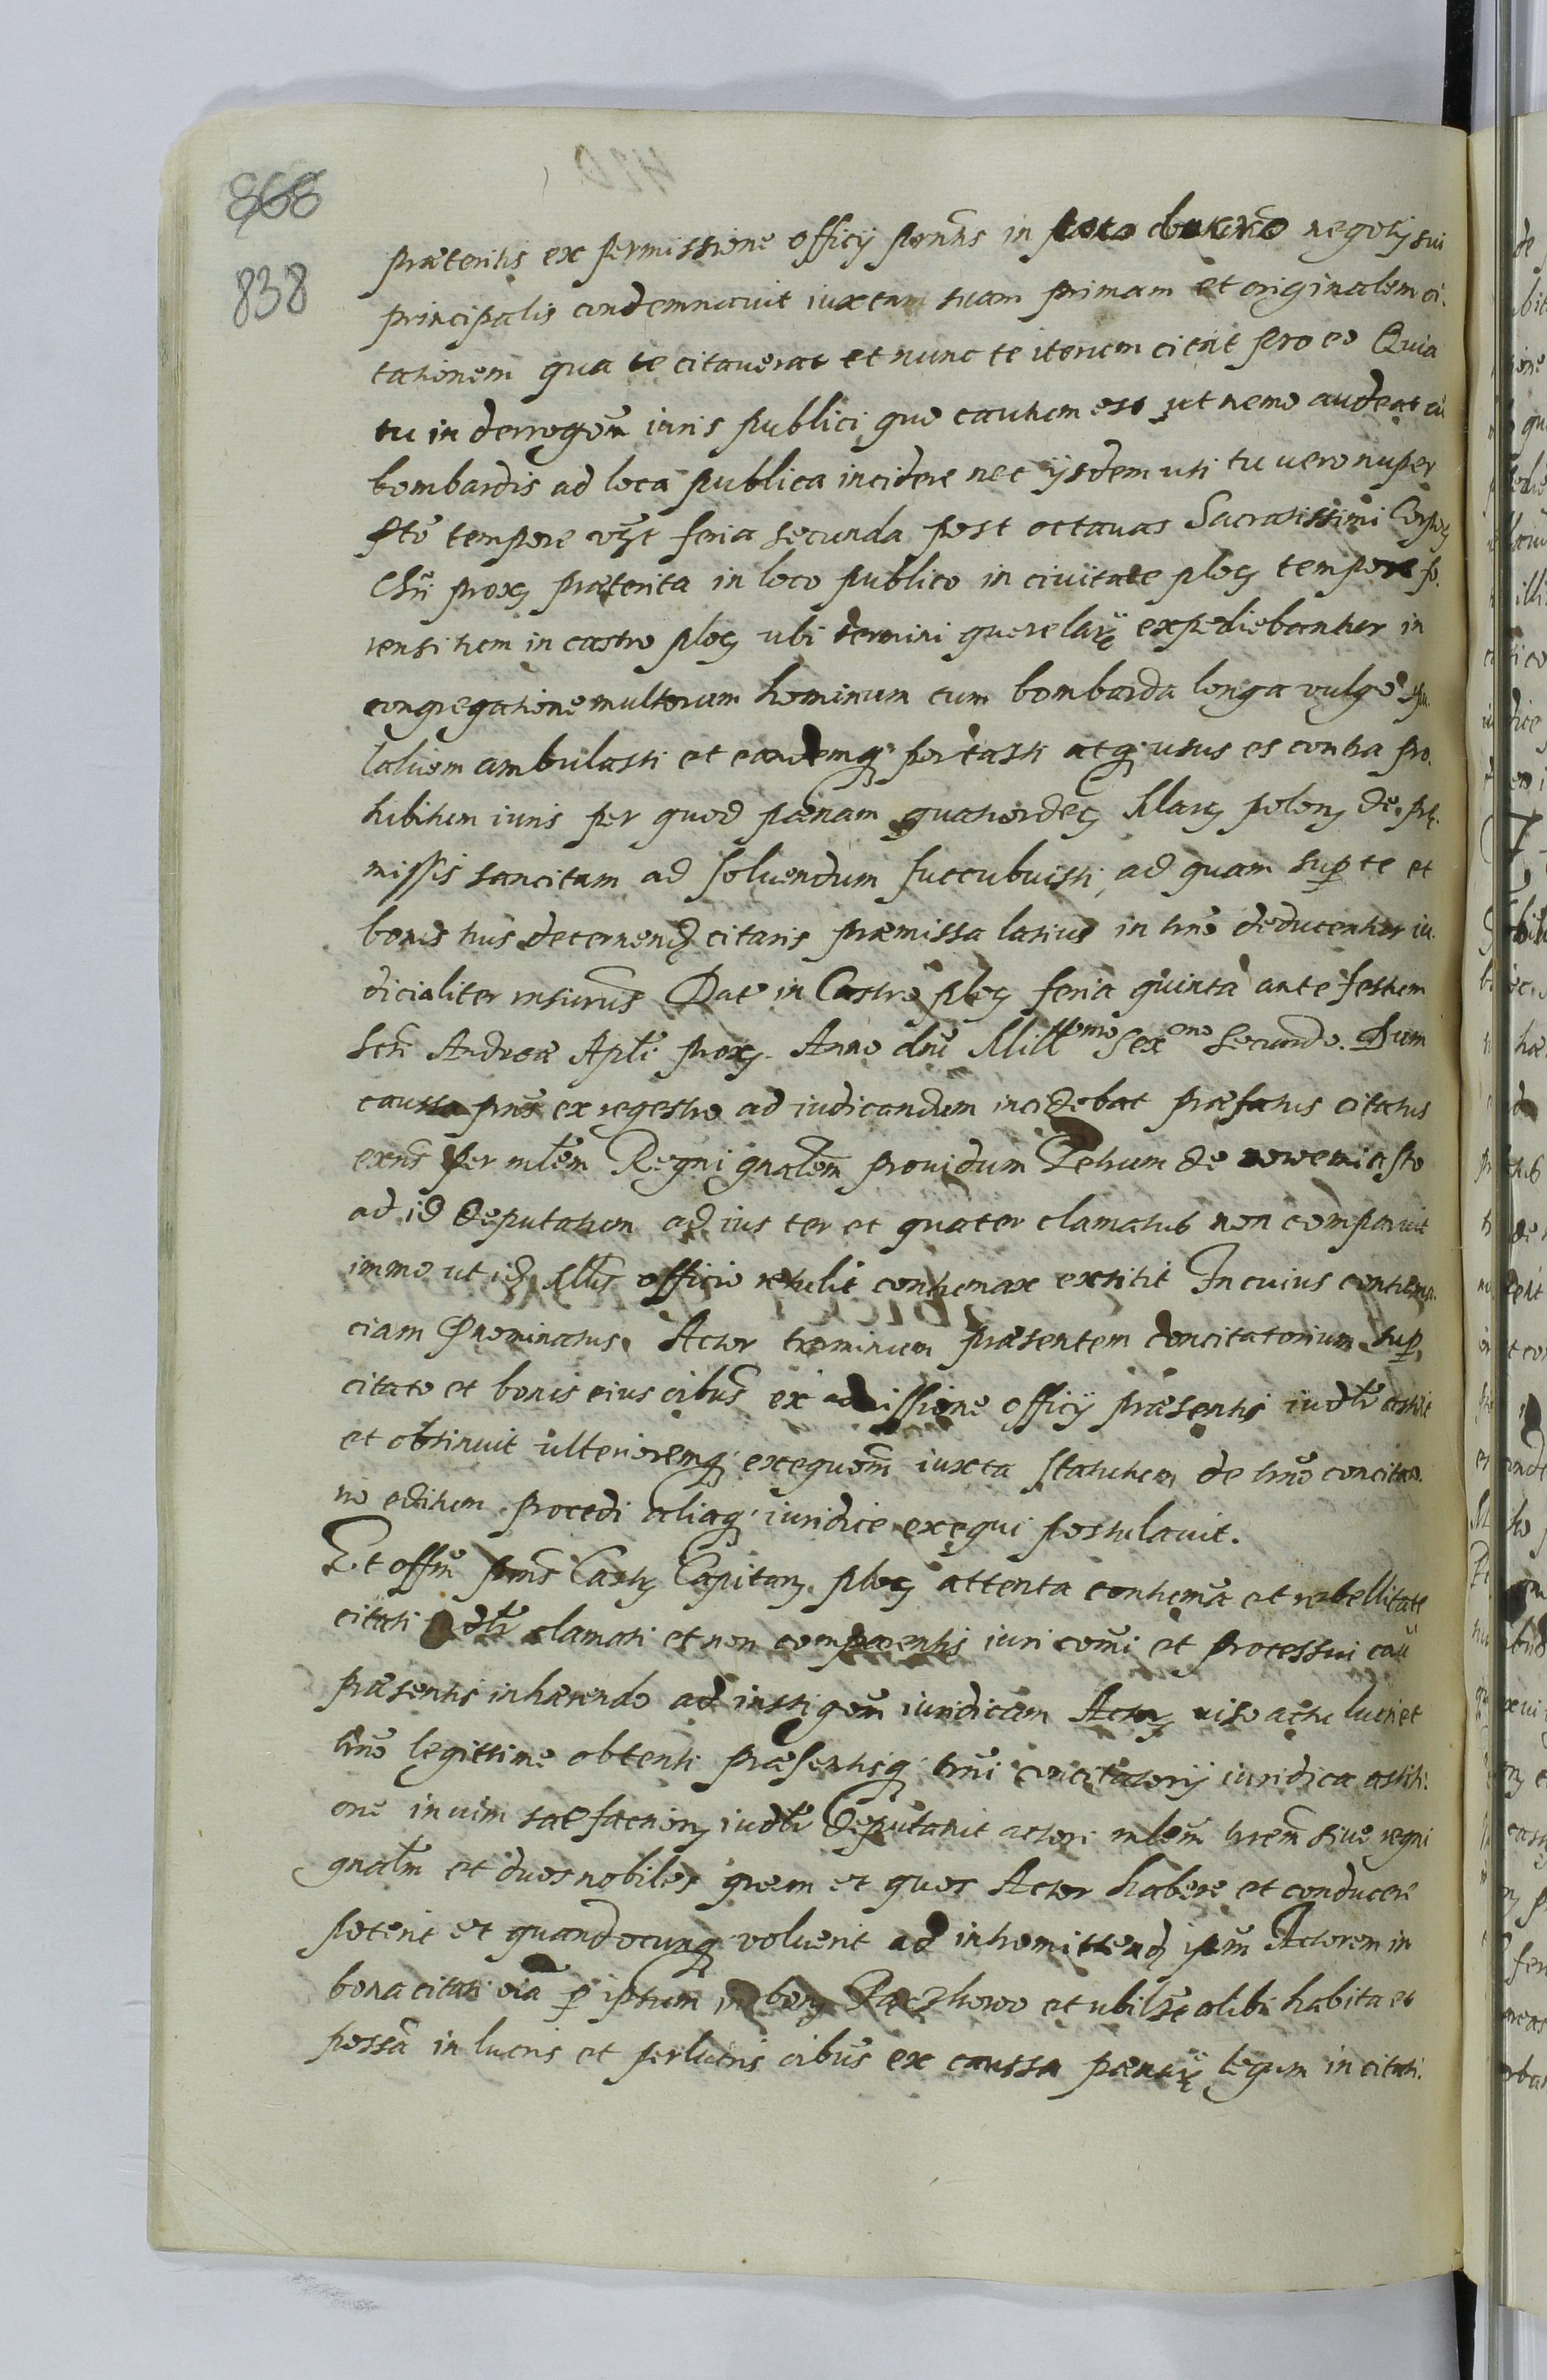 868
838
præteritis ex permissione officij pñtis in negotij sui
principalis condemnavit iuxtam suam primam et originalem ci-
tationem qua te citaverat et nunc te iterum citat pro eo Quia
tu in derrogoẽm iuris publici quo cautum est ut nemo audeat cũ
bombardis ad loca publica incidere nec ijsdem uti tu uero nuper
pto tempore vzt feria secunda post octavas Sacratissimi Corporis
Chri prox præterita in loco publico in civitate ploc tempore fo-
rensi tum in castro ploc ubi termini querelarũ expediebantur in
congregatione multorum hominum cum bombarda longa vulgo
ambulasti et eandemq portasti atq usus es contra pro-
hibitum iuris per quod pœnam quatuordec Marc polon de præ-
missis sancitam ad soluendum succubuisti, ad quam sup te et
bonis tuis decernend citaris præmissa latius in tño deducentur iu-
dicialiter rnsurus Dat in Castro ploc feria quinta ante festum
Scti Andreæ Apli prox. Anno dni Mill^emo Sex^mo secundo. Dum
caussa pñs ex regestro ad iudicandum incidebat præfatus citatus
exñs per mlẽm Regni gnalẽm providum Petrum de nowemiasto
ad id deputatum ad ius ter et quater clamatus non comparuit
immo ut id Mlis officio retulit contumax extitit In cuius contuma-
ciam Prnominatus Actor terminum præsentem concitatorium sup
citato et bonis eius oibus ex admissione officij præsentis iudtr astitit
et obtinuit ulterioremq exequõem iuxta statutum de tño concitato-
rio editum procedi aliaq iuridice exequi postulavit.
Et offm pñs Castr Capitan ploc attenta contumã et rebellitate
citati iudtr clamati et non comparentis iuri comi et processui cau
præsentis inhærendo ad instigoẽm iuridicam Actor viso actu lucri et
tño legittime obtenti præsentisq tñi concitatorij iuridica astiti-
one in vim satisfaction iudtr deputavit actori mlẽm trem sive regni
gnalm et duos nobiles quem et quos Actor habere et conducere
poterit et quandocunq voluerit ad intromittend ipm Actorem in
bona citati oia p ipsum in bon et ubilibet alibi habita et
possã in lucris et perlucris oibus ex caussa pœnarũ legum in citati-